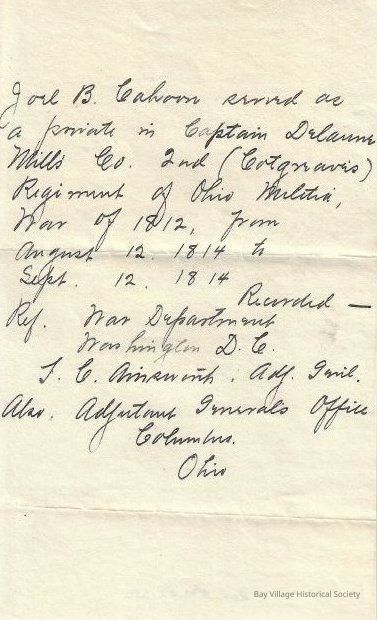 Joel B. Cahoon served as
a private in Captain Delaune
Mills Co. 2nd (Cotgreaves)
Regiment of Ohio Militia,
War of 1812, from
August 12. 1814 to
Sept. 12. 1814
Recorded —
Ref. War Department
Washington D. C.
F. C. Ainsworth. Adj. Genl.
Also. Adjutant Generals Office
Columbus.
Ohio
Bay Village Historical Society